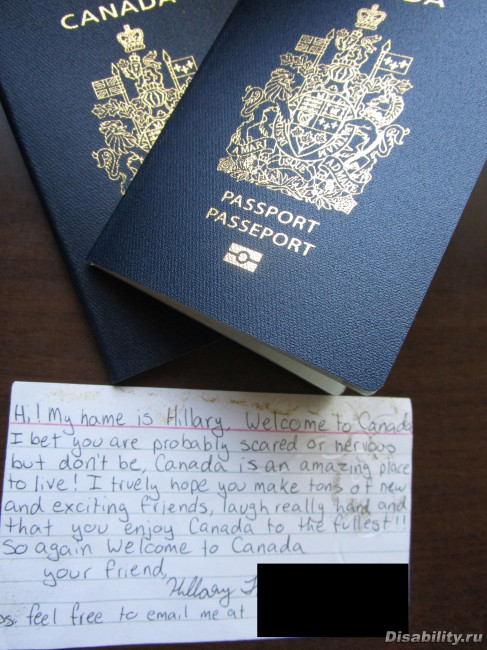 CANADA
CANADA
PASSPORT
PASSEPORT
Hi! My name is Hillary, Welcome to Canada
I bet you are probably scared or nervous
but don't be, Canada is an amazing place
to live! I truely hope you make tons of new
and exciting friends, laugh really hard and
that you enjoy Canada to the fullest!!
So again Welcome to Canada
your friend,
Hillary
ps. feel free to email me at
Disability.ru